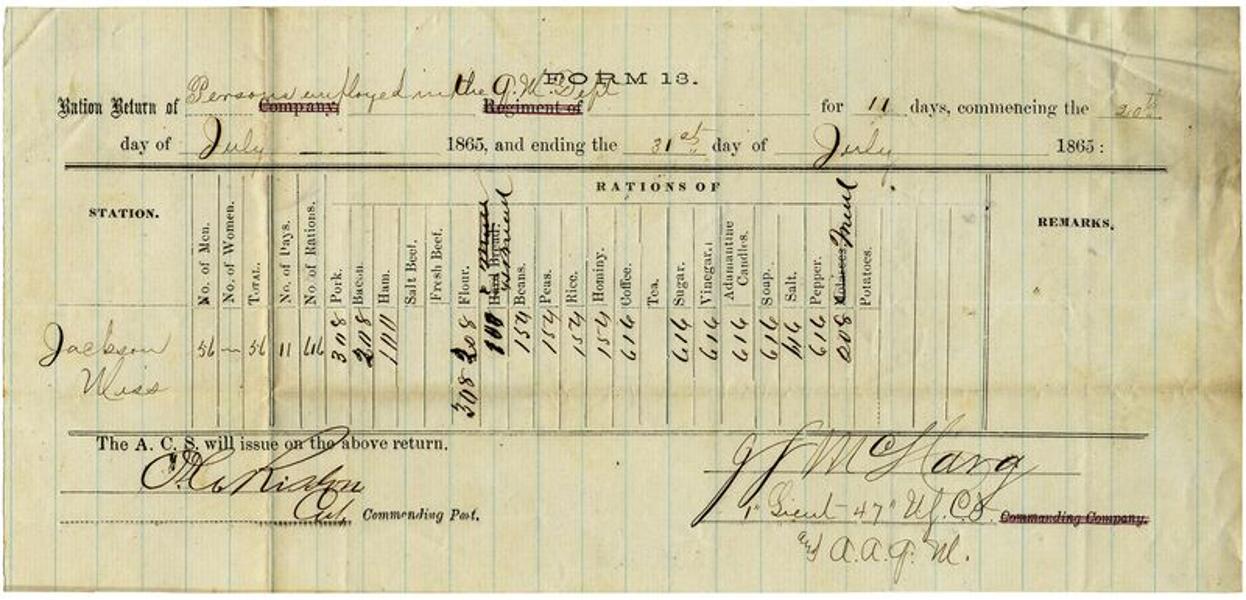 FORM 13.
Ration Return of Persons employed in the Q.M. Dept Company, Regiment of for 11 days, commencing the 20th
day of July 1865, and ending the 31st day of July 1865:
RATIONS OF
STATION. No. of Men. No. of Women. TOTAL. No. of Days. No. of Rations. Pork. Bacon. Ham. Salt Beef. Fresh Beef. Flour. Hard Bread. Beans. Peas. Rice. Hominy. Coffee. Tea. Sugar. Vinegar. Adamantine Candles. Soap. Salt. Pepper. Molasses. Meal Potatoes. REMARKS.
Jackson 56 56 11 616 308 208 100 308 208 100 154 154 154 154 616 616 616 616 616 616 616
Miss
The A. C. S. will issue on the above return.
J J McHarg
Commending Post.
1st Lieut 47" U.S. C.I. Commanding Company.
and A. A. Q. M.